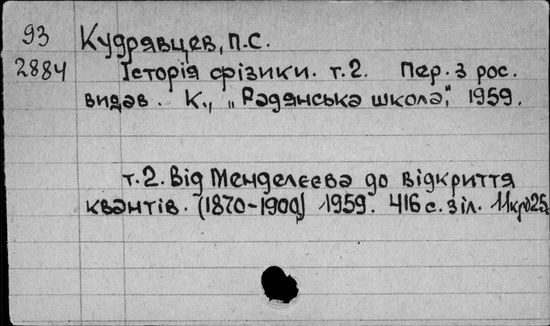 93 Кудрявцев, П.С.
2884 Історія фізики. т.2. Пер. з рос.
видав. К., „Радянська школа", 1959.
т.2. Від Менделєєва до відкриття
квантів. (1870-1900) 1959. 416 с. з іл. 11 крб 25